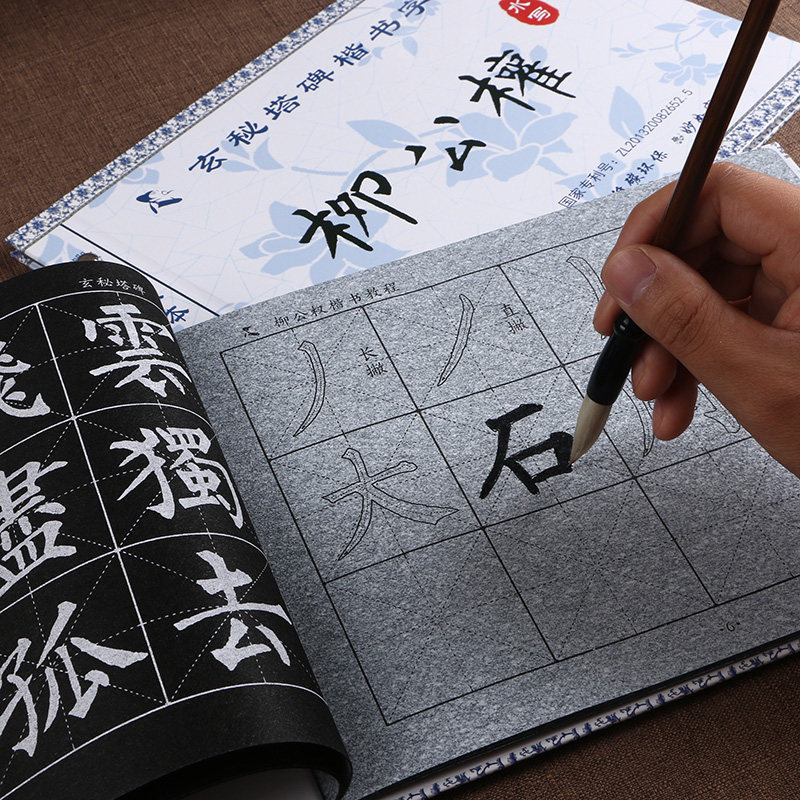 水写
玄秘塔碑楷书字
柳公權
国家专利号：ZL201320082652.5
碳环保
本
玄秘塔碑
飛盡孤
雲獨去
柳公权楷书教程
长撇
直撇
大 石
-6-